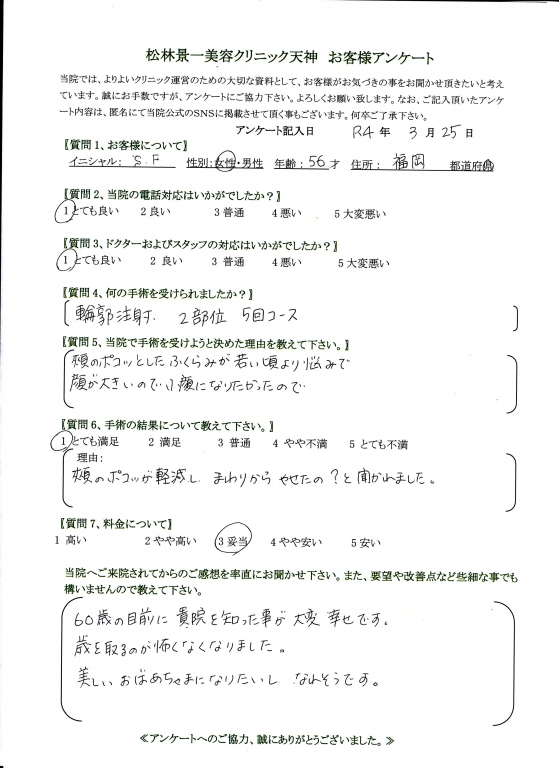 松林景一美容クリニック天神　お客様アンケート
当院では、よりよいクリニック運営のための大切な資料として、お客様がお気づきの事をお聞かせ頂きたいと考え
ています。誠にお手数ですが、アンケートにご協力下さい。よろしくお願い致します。なお、ご記入頂いたアンケ
ート内容は、匿名にて当院公式のSNSに掲載させて頂く事もございます。何卒ご了承下さい。
アンケート記入日　R4 年 3 月 25 日
【質問1、お客様について】
イニシャル： S.F　性別：女性・男性　年齢：56 才　住所： 福岡　都道府県
【質問2、当院の電話対応はいかがでしたか？】
1 とても良い　2 良い　3 普通　4 悪い　5 大変悪い
【質問3、ドクターおよびスタッフの対応はいかがでしたか？】
1 とても良い　2 良い　3 普通　4 悪い　5 大変悪い
【質問4、何の手術を受けられましたか？】
輪郭注射． 2部位 5回コース
【質問5、当院で手術を受けようと決めた理由を教えて下さい。】
頬のポコッとしたふくらみが若い頃より悩みで
顔が大きいので小顔になりたかったので
【質問6、手術の結果について教えて下さい。】
1 とても満足　2 満足　3 普通　4 やや不満　5 とても不満
理由：
頬のポコッが軽減し まわりから やせたの？と聞かれました。
【質問7、料金について】
1 高い　2 やや高い　3 妥当　4 やや安い　5 安い
当院へご来院されてからのご感想を率直にお聞かせ下さい。また、要望や改善点など些細な事でも
構いませんので教えて下さい。
60歳の目前に 貴院を知った事が 大変 幸せです。
歳を取るのが怖くなくなりました。
美しいおばあちゃまになりたいし なれそうです。
≪アンケートへのご協力、誠にありがとうございました。≫